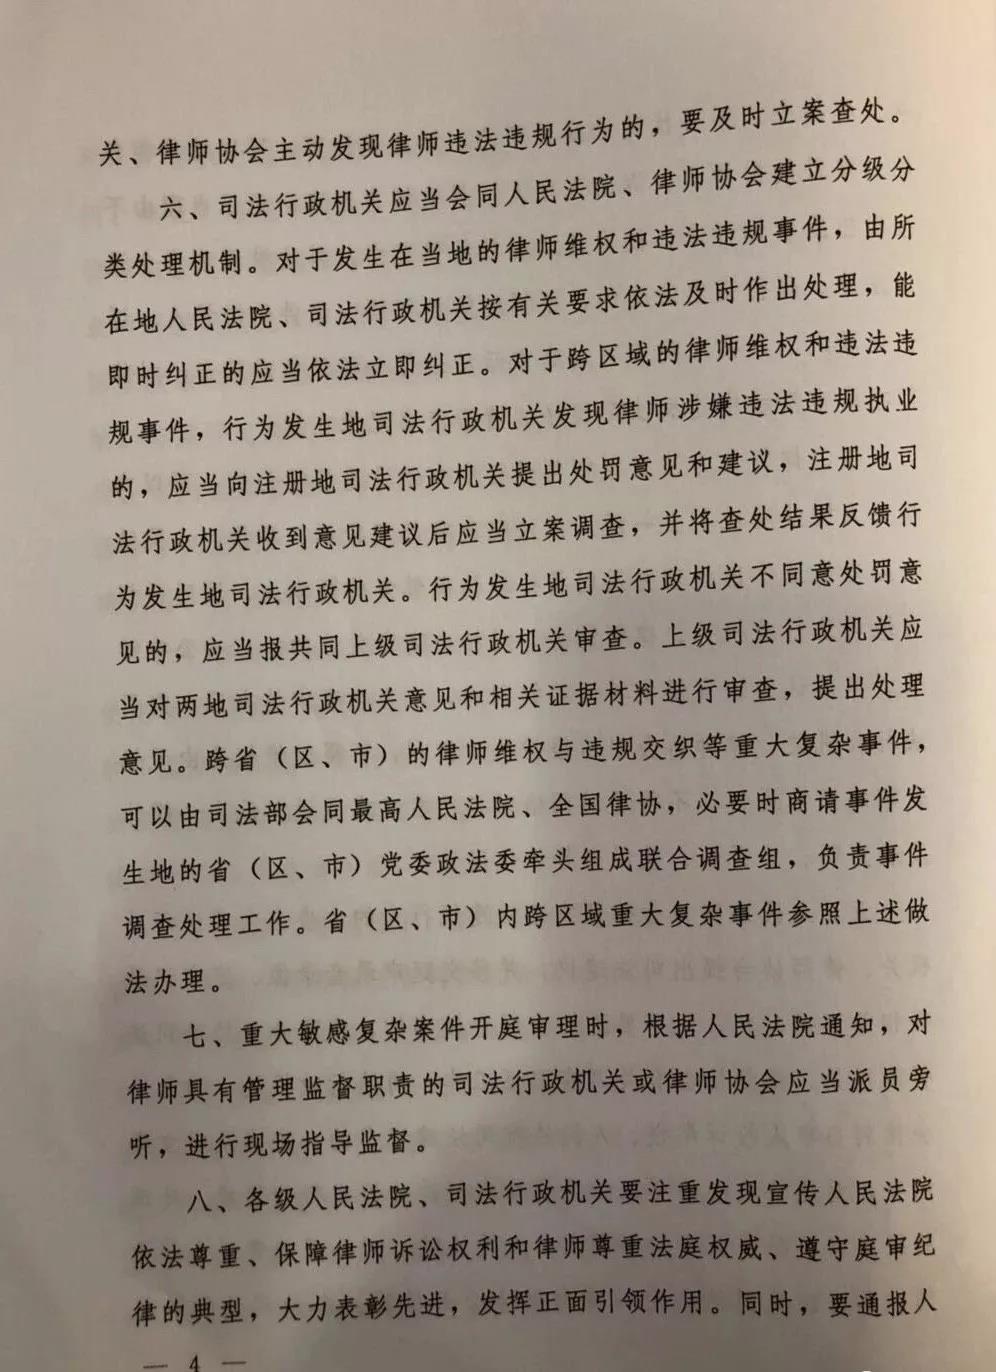 关、律师协会主动发现律师违法违规行为的，要及时立案查处。
六、司法行政机关应当会同人民法院、律师协会建立分级分
类处理机制。对于发生在当地的律师维权和违法违规事件，由所
在地人民法院、司法行政机关按有关要求依法及时作出处理，能
即时纠正的应当依法立即纠正。对于跨区域的律师维权和违法违
规事件，行为发生地司法行政机关发现律师涉嫌违法违规执业
的，应当向注册地司法行政机关提出处罚意见和建议，注册地司
法行政机关收到意见建议后应当立案调查，并将查处结果反馈行
为发生地司法行政机关。行为发生地司法行政机关不同意处罚意
见的，应当报共同上级司法行政机关审查。上级司法行政机关应
当对两地司法行政机关意见和相关证据材料进行审查，提出处理
意见。跨省（区、市）的律师维权与违规交织等重大复杂事件，
可以由司法部会同最高人民法院、全国律协，必要时商请事件发
生地的省（区、市）党委政法委牵头组成联合调查组，负责事件
调查处理工作。省（区、市）内跨区域重大复杂事件参照上述做
法办理。
七、重大敏感复杂案件开庭审理时，根据人民法院通知，对
律师具有管理监督职责的司法行政机关或律师协会应当派员旁
听，进行现场指导监督。
八、各级人民法院、司法行政机关要注重发现宣传人民法院
依法尊重、保障律师诉讼权利和律师尊重法庭权威、遵守庭审纪
律的典型，大力表彰先进，发挥正面引领作用。同时，要通报人
— 4 —